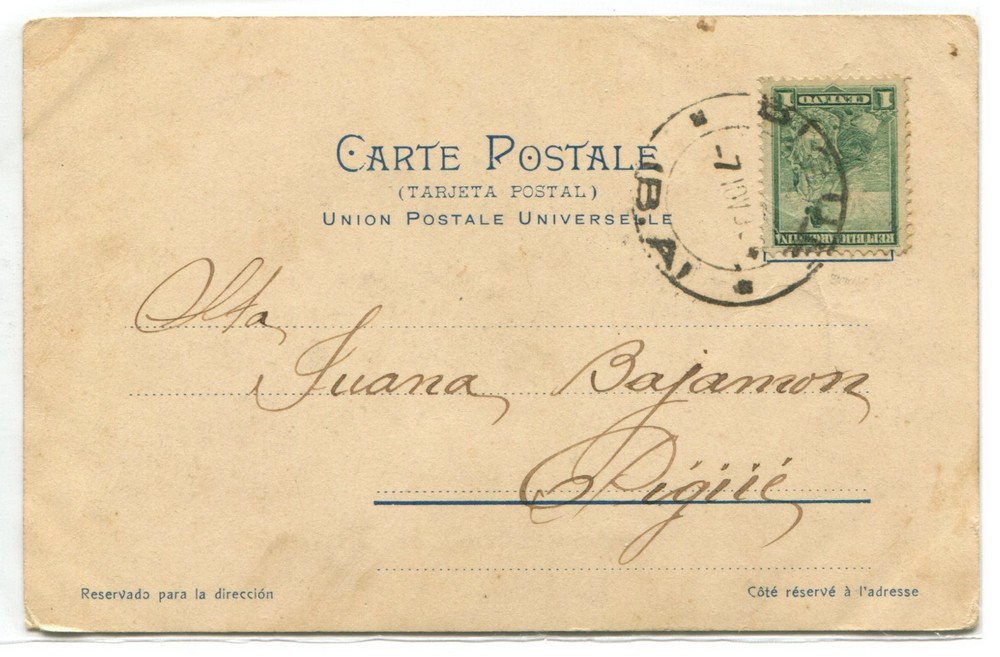 CARTE POSTALE
(TARJETA POSTAL)
UNION POSTALE UNIVERSELLE
1 CENTAVO 1
REPUBLICA ARGENTINA
(B.A)
7 NOV
Juana Bajamon
Pigüé
Reservado para la dirección
Côté réservé à l'adresse